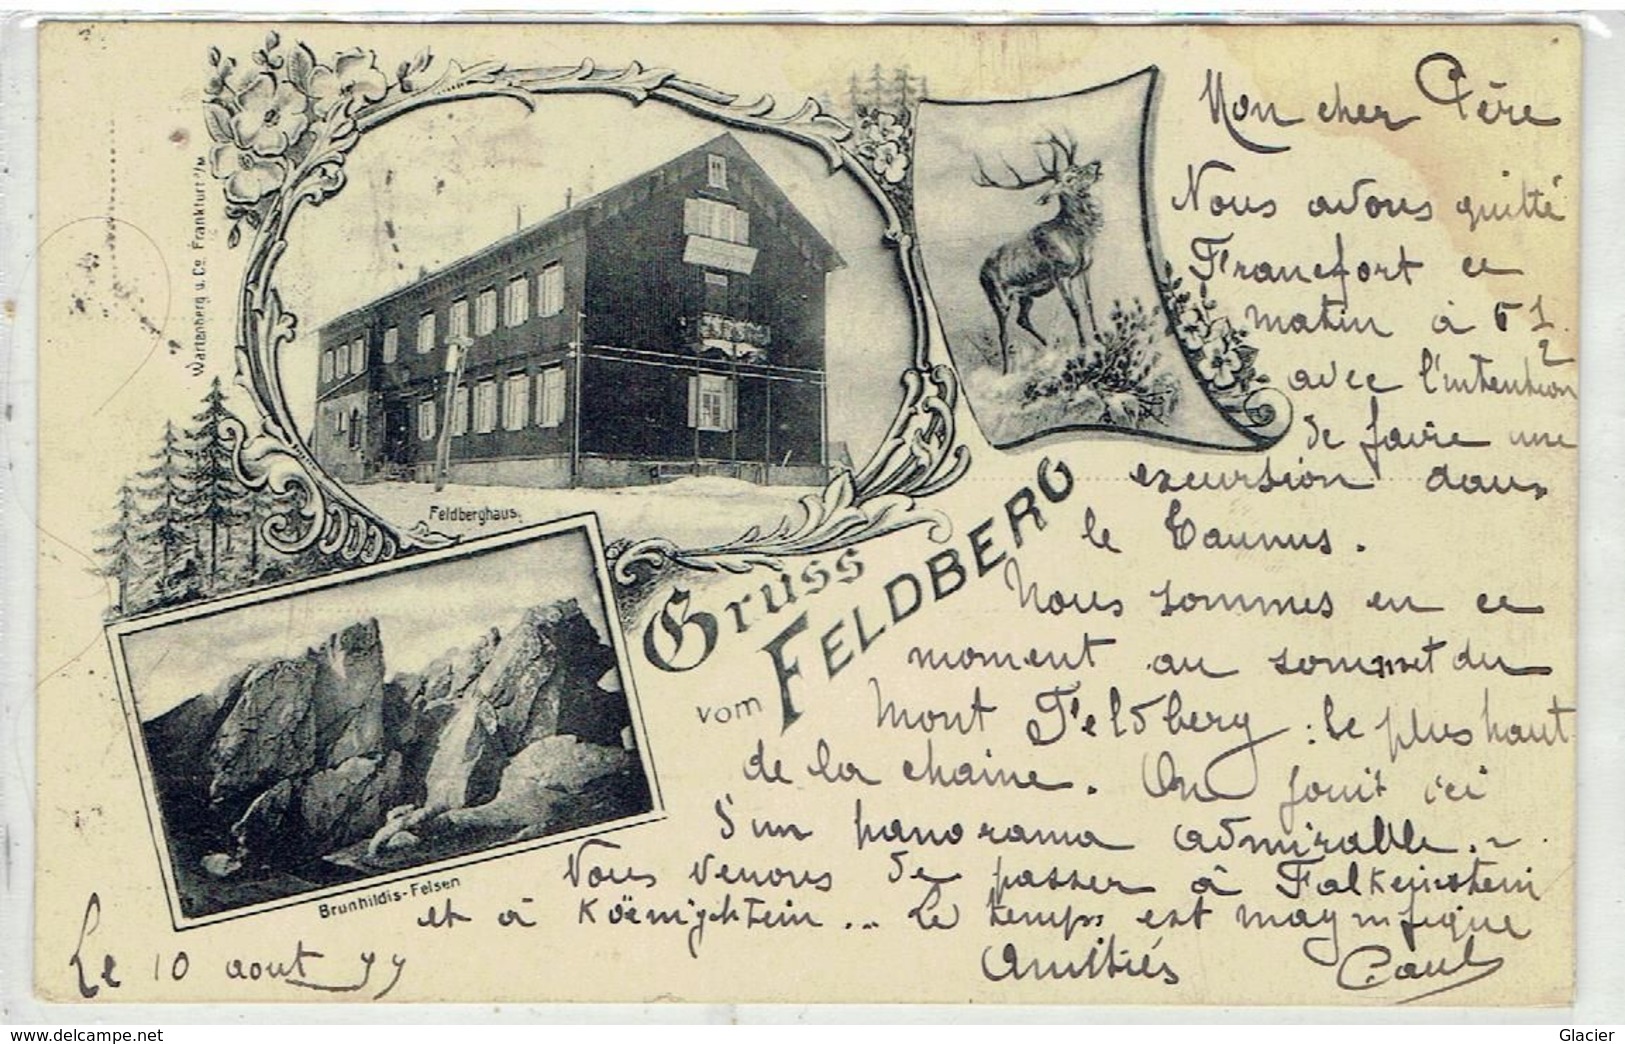 Mon cher Père
Nous avons quitté
Francfort ce
matin à 6 1/2
avec l'intention
de faire une
excursion dans
le Taunus.
Nous sommes en ce
moment au sommet du
Mont Feldberg : le plus haut
de la chaine. On jouit ici
d'un panorama admirable. ~
Nous venons de passer à Falkenstein
et à Köenigstein... Le temps est magnifique
Amitiés Paul
Le 10 aout 99
Gruss
vom FELDBERG
Feldberghaus.
Brunhildis-Felsen
Wartenberg u. Co. Frankfurt a/M
Glacier
delcampe.net